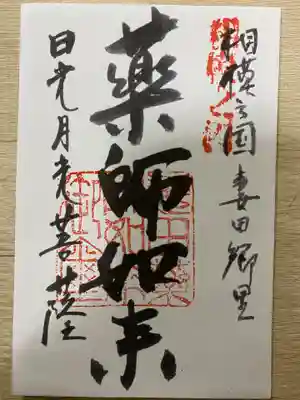 相模之国妻田郷里
薬師如来
日光月光菩薩